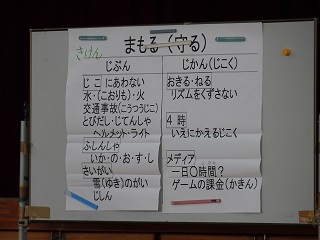 さけん
まもる(守る)
じぶん
じこにあわない
水・(こおりも)・火
交通事故(こうつうじこ)
とびだし・じてんしゃ
ヘルメット・ライト
ふしんしゃ
いか・の・お・す・し
さいがい
雪(ゆき)のがい
じしん
じかん(じこく)
おきる・ねる
リズムをくずさない
4時
いえにかえるじこく
メディア
一日〇時間?
ゲームの課金(かきん)